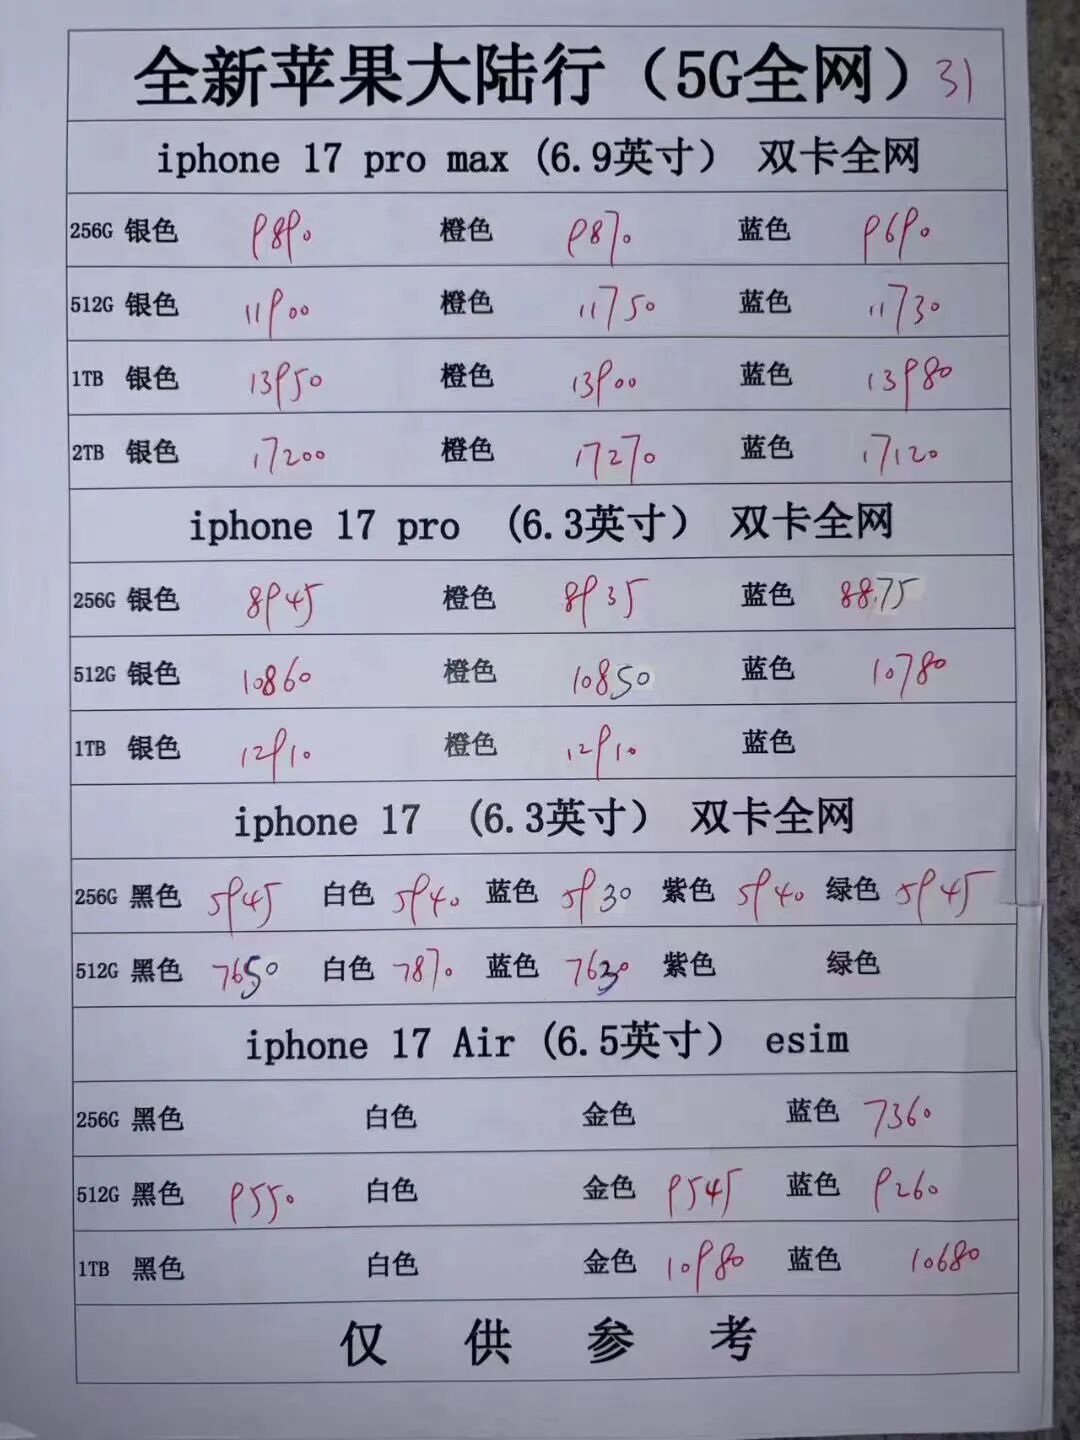 全新苹果大陆行（5G全网）31
iphone 17 pro max (6.9英寸） 双卡全网
256G 银色 9890 橙色 9870 蓝色 9690
512G 银色 11900 橙色 11750 蓝色 11730
1TB 银色 13950 橙色 13900 蓝色 13980
2TB 银色 17200 橙色 17270 蓝色 17120
iphone 17 pro (6.3英寸） 双卡全网
256G 银色 8945 橙色 8935 蓝色 8875
512G 银色 10860 橙色 10850 蓝色 10780
1TB 银色 12910 橙色 12910 蓝色
iphone 17 (6.3英寸） 双卡全网
256G 黑色 5945 白色 5940 蓝色 5930 紫色 5940 绿色 5945
512G 黑色 7650 白色 7870 蓝色 7630 紫色 绿色
iphone 17 Air (6.5英寸） esim
256G 黑色 白色 金色 蓝色 7360
512G 黑色 9550 白色 金色 9545 蓝色 9260
1TB 黑色 白色 金色 10980 蓝色 10680
仅 供 参 考